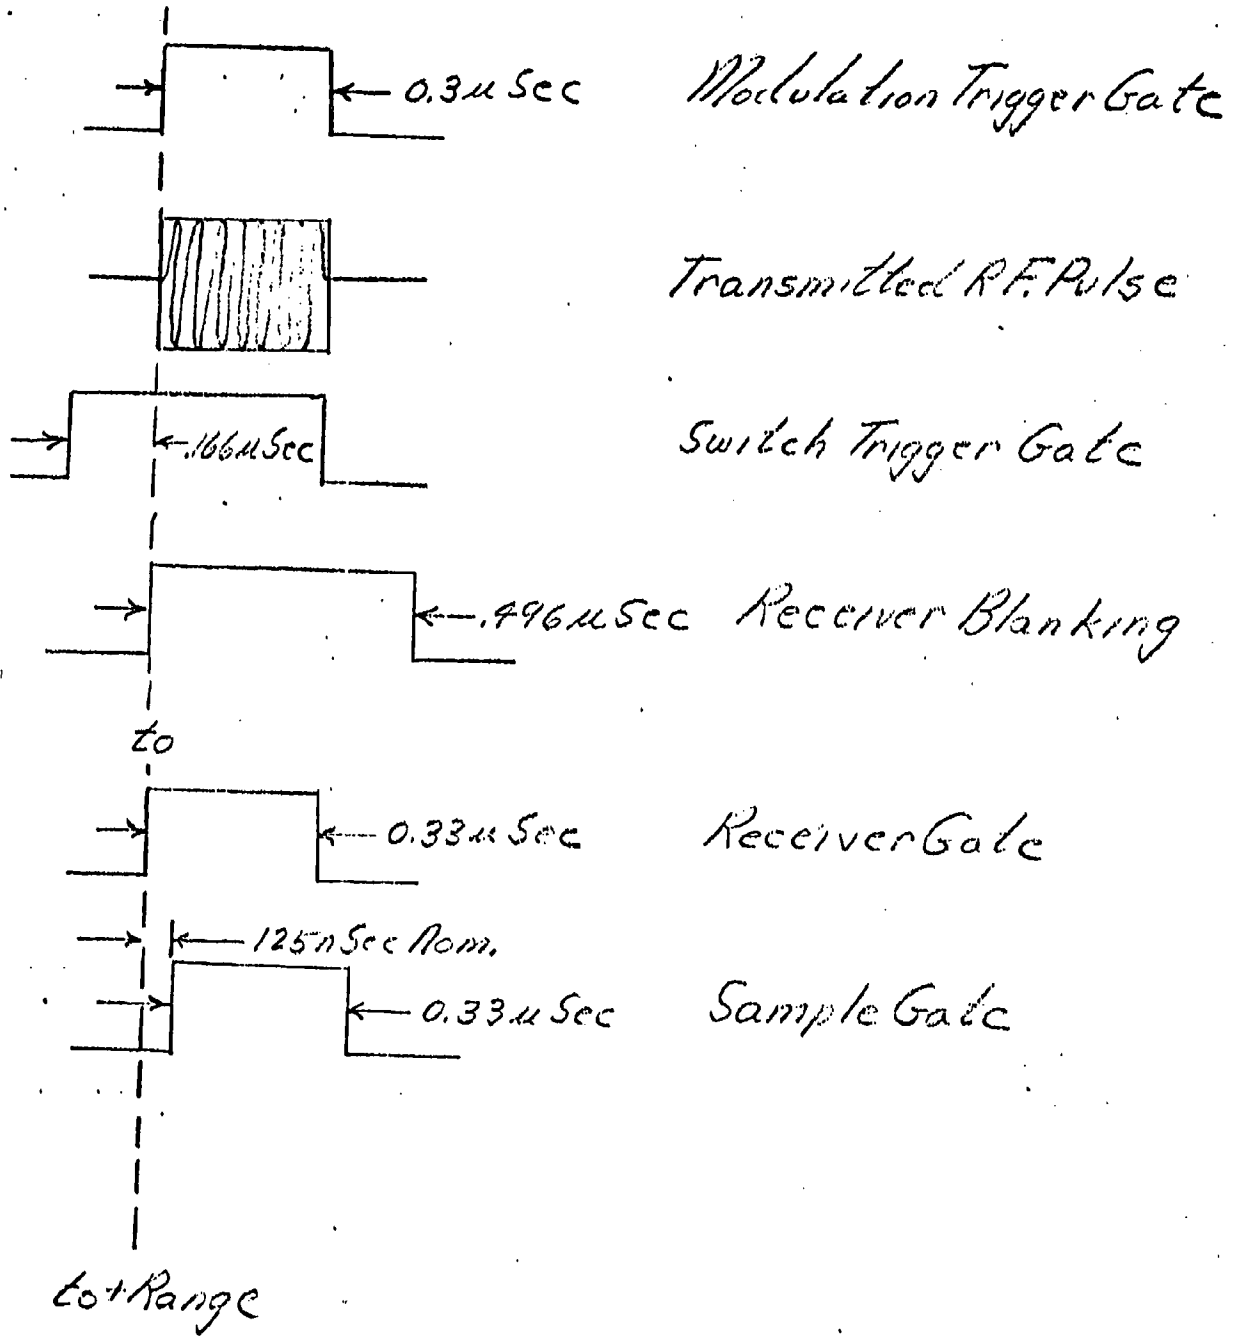 0.3μSec Modulation Trigger Gate
Transmitted R.F. Pulse
.166μSec Switch Trigger Gate
.496μSec Receiver Blanking
to
0.33μSec Receiver Gate
125nSec Nom.
0.33μSec Sample Gate
to+Range